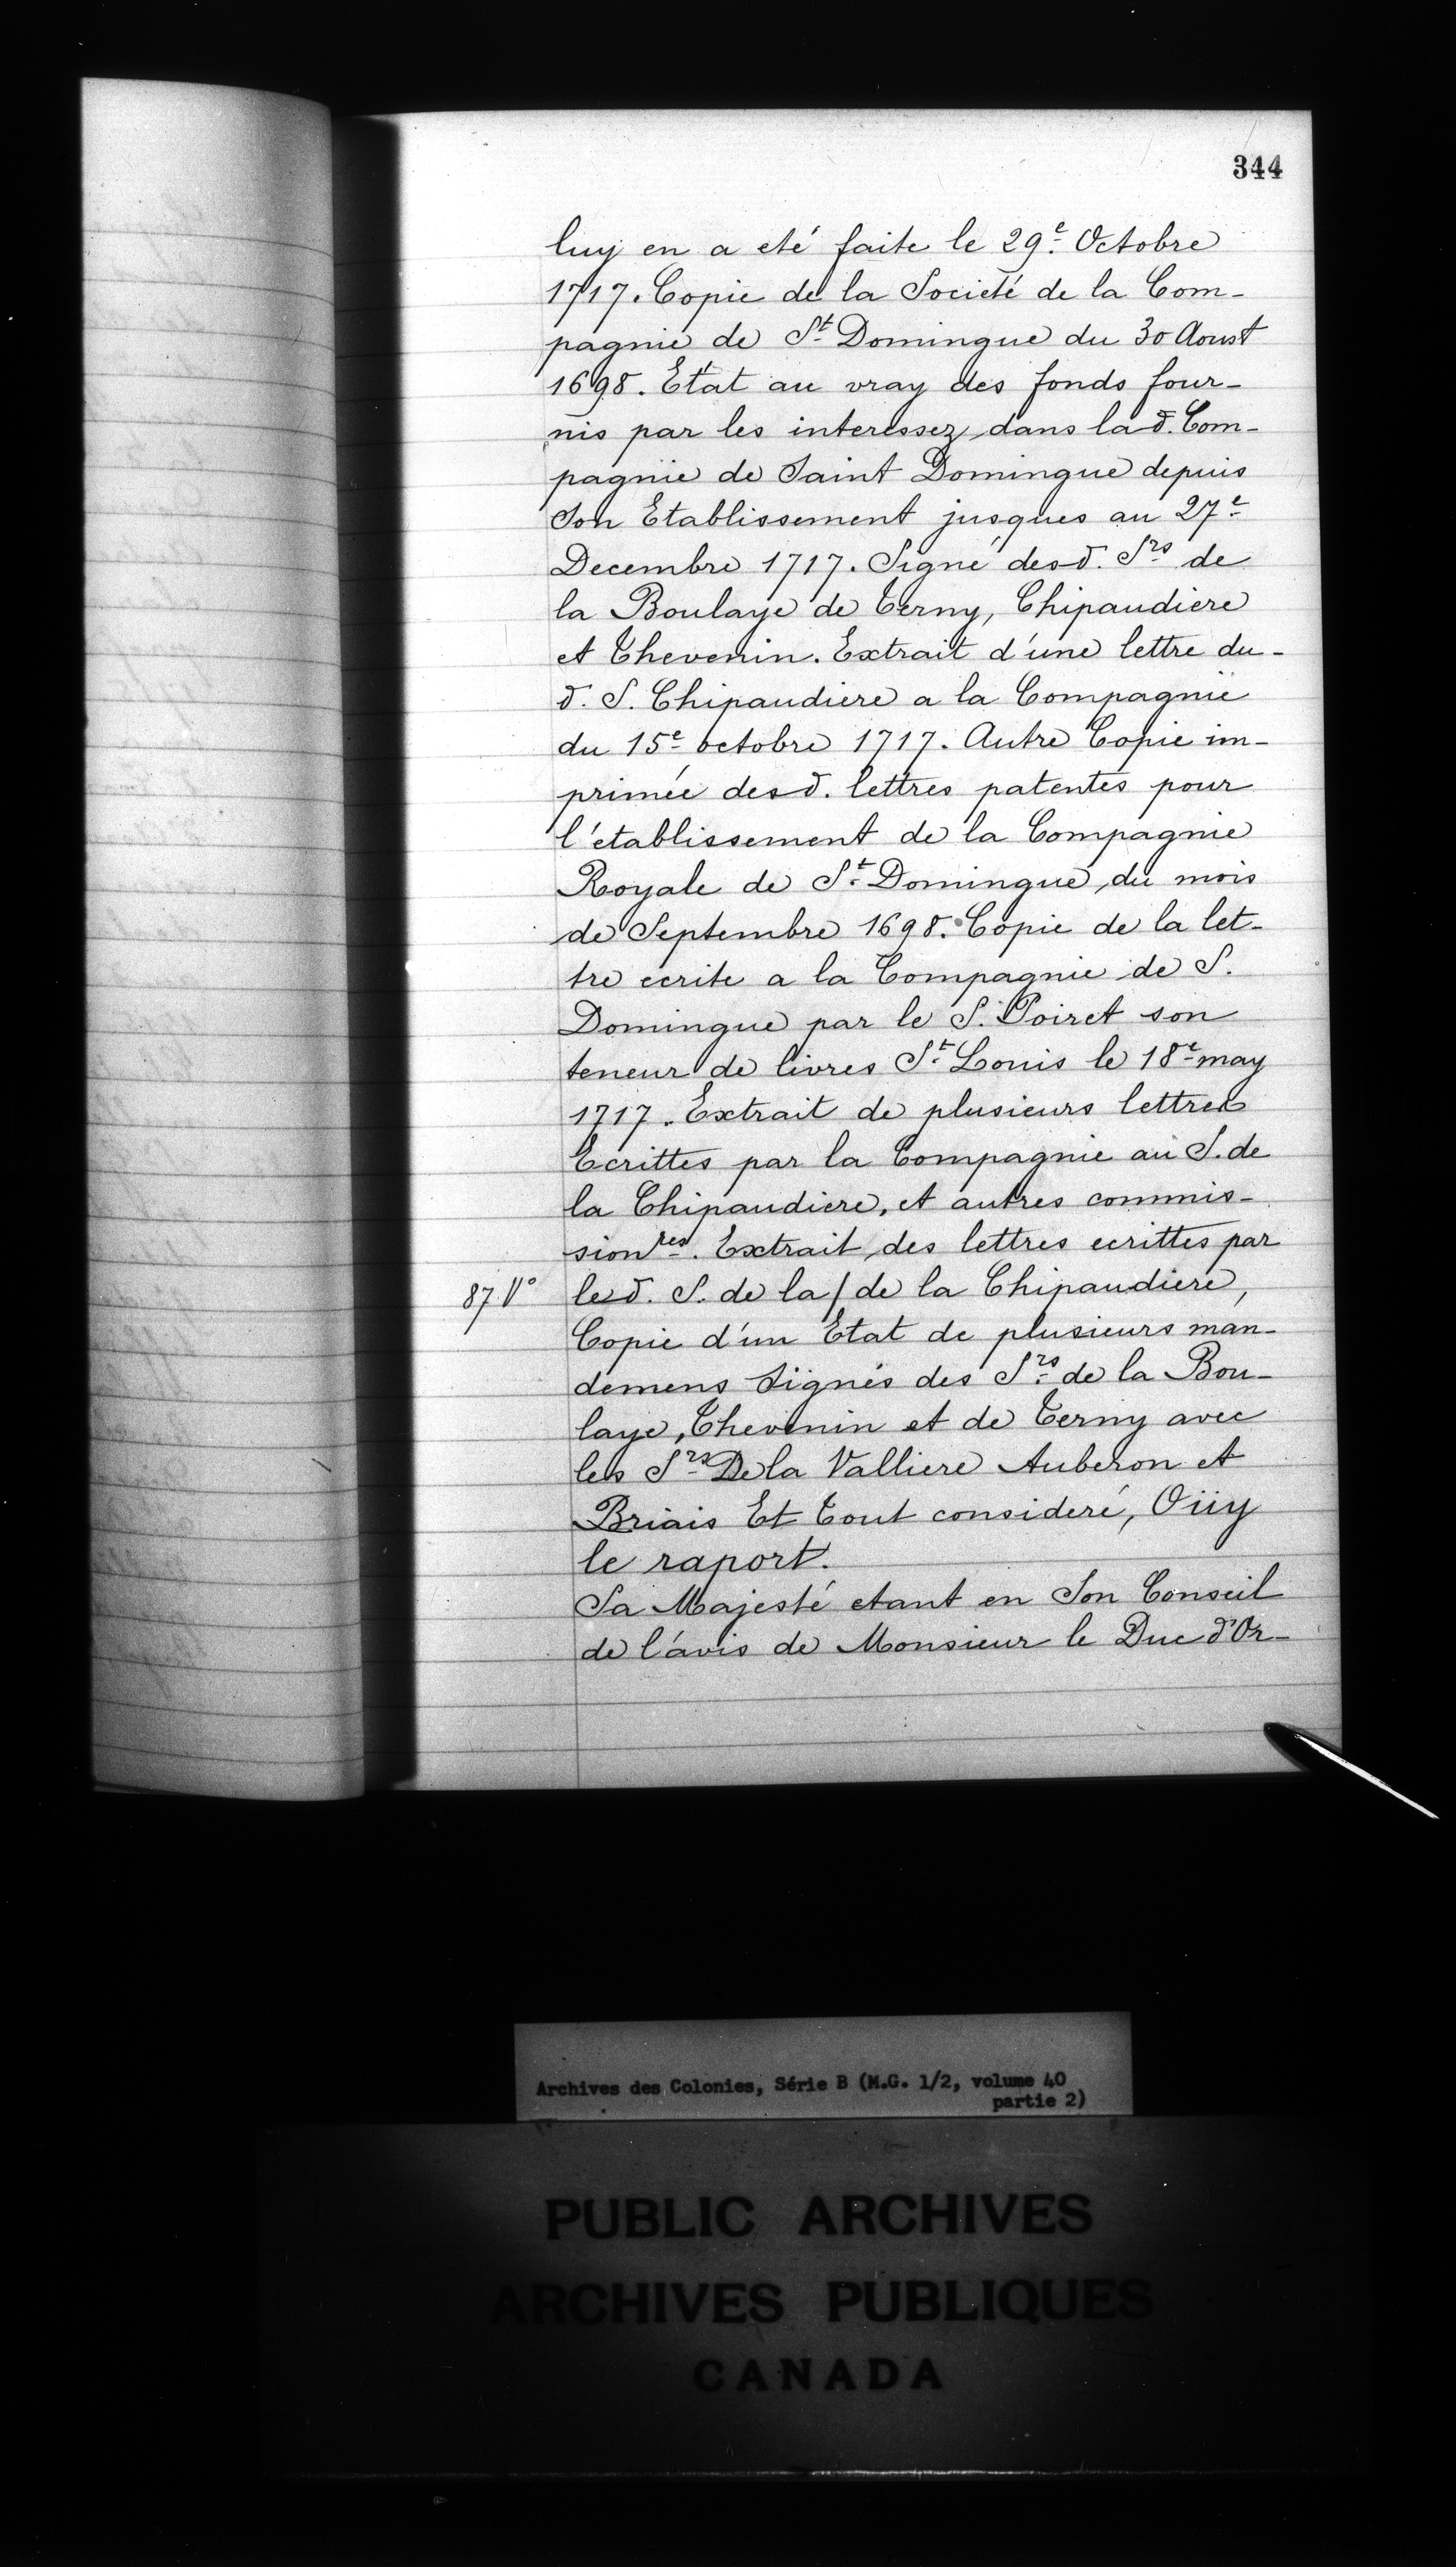 344
luy en a eté faite le 29e Octobre
1717. Copie de la Societé de la Com-
pagnie de St Domingue du 30 Aoust
1698. Etat au vray des fonds four-
nis par les interessez dans la d. Com-
pagnie de Saint Domingue depuis
Son Etablissement jusques au 27e
Decembre 1717. Signé des d. Srs de
la Boulaye de Terny, Chipaudiere
et Thevenin. Extrait d'une lettre du-
d. S. Chipaudiere a la Compagnie
du 15e octobre 1717. Autre Copie im-
primée des d. lettres patentes pour
l'etablissement de la Compagnie
Royale de St Domingue, du mois
de Septembre 1698. Copie de la let-
tre ecrite a la Compagnie de S.
Domingue par le S. Poiret son
teneur de livres St Louis le 18e may
1717. Extrait de plusieurs lettres
Ecrittes par la Compagnie au S. de
la Chipaudiere, et autres commis-
sionres. Extrait des lettres ecrittes par
87 Vo le d. S. de la / de la Chipaudiere,
Copie d'un Etat de plusieurs man-
demens Signés des Srs de la Bou-
laye, Thevenin et de Terny avec
les Srs De la Valliere Auberon et
Briais Et Tout consideré, Oüy
le raport.
Sa Majesté etant en Son Conseil
de l'avis de Monsieur le Duc d'Or-
Archives des Colonies, Série B (M.G. 1/2, volume 40
partie 2)
PUBLIC ARCHIVES
ARCHIVES PUBLIQUES
CANADA